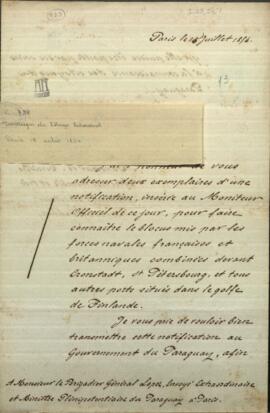 Paris le 15 Juillet 1854.
13
J'ai l'honneur de vous
adresser deux exemplaires d'une
notification, insérée au Moniteur
Officiel de ce jour, pour faire
connaître le blocus mis par les
forces navales françaises et
britanniques combinées devant
Cronstadt, St Pétersbourg, et tous
autres ports situés dans le golfe
de Finlande.
Je vous prie de vouloir bien
transmettre cette notification au
Gouvernement du Paraguay, afin
A Monsieur le Brigadier Général Lopez, Envoyé Extraordinaire
et Ministre Plénipotentiaire du Paraguay à Paris.